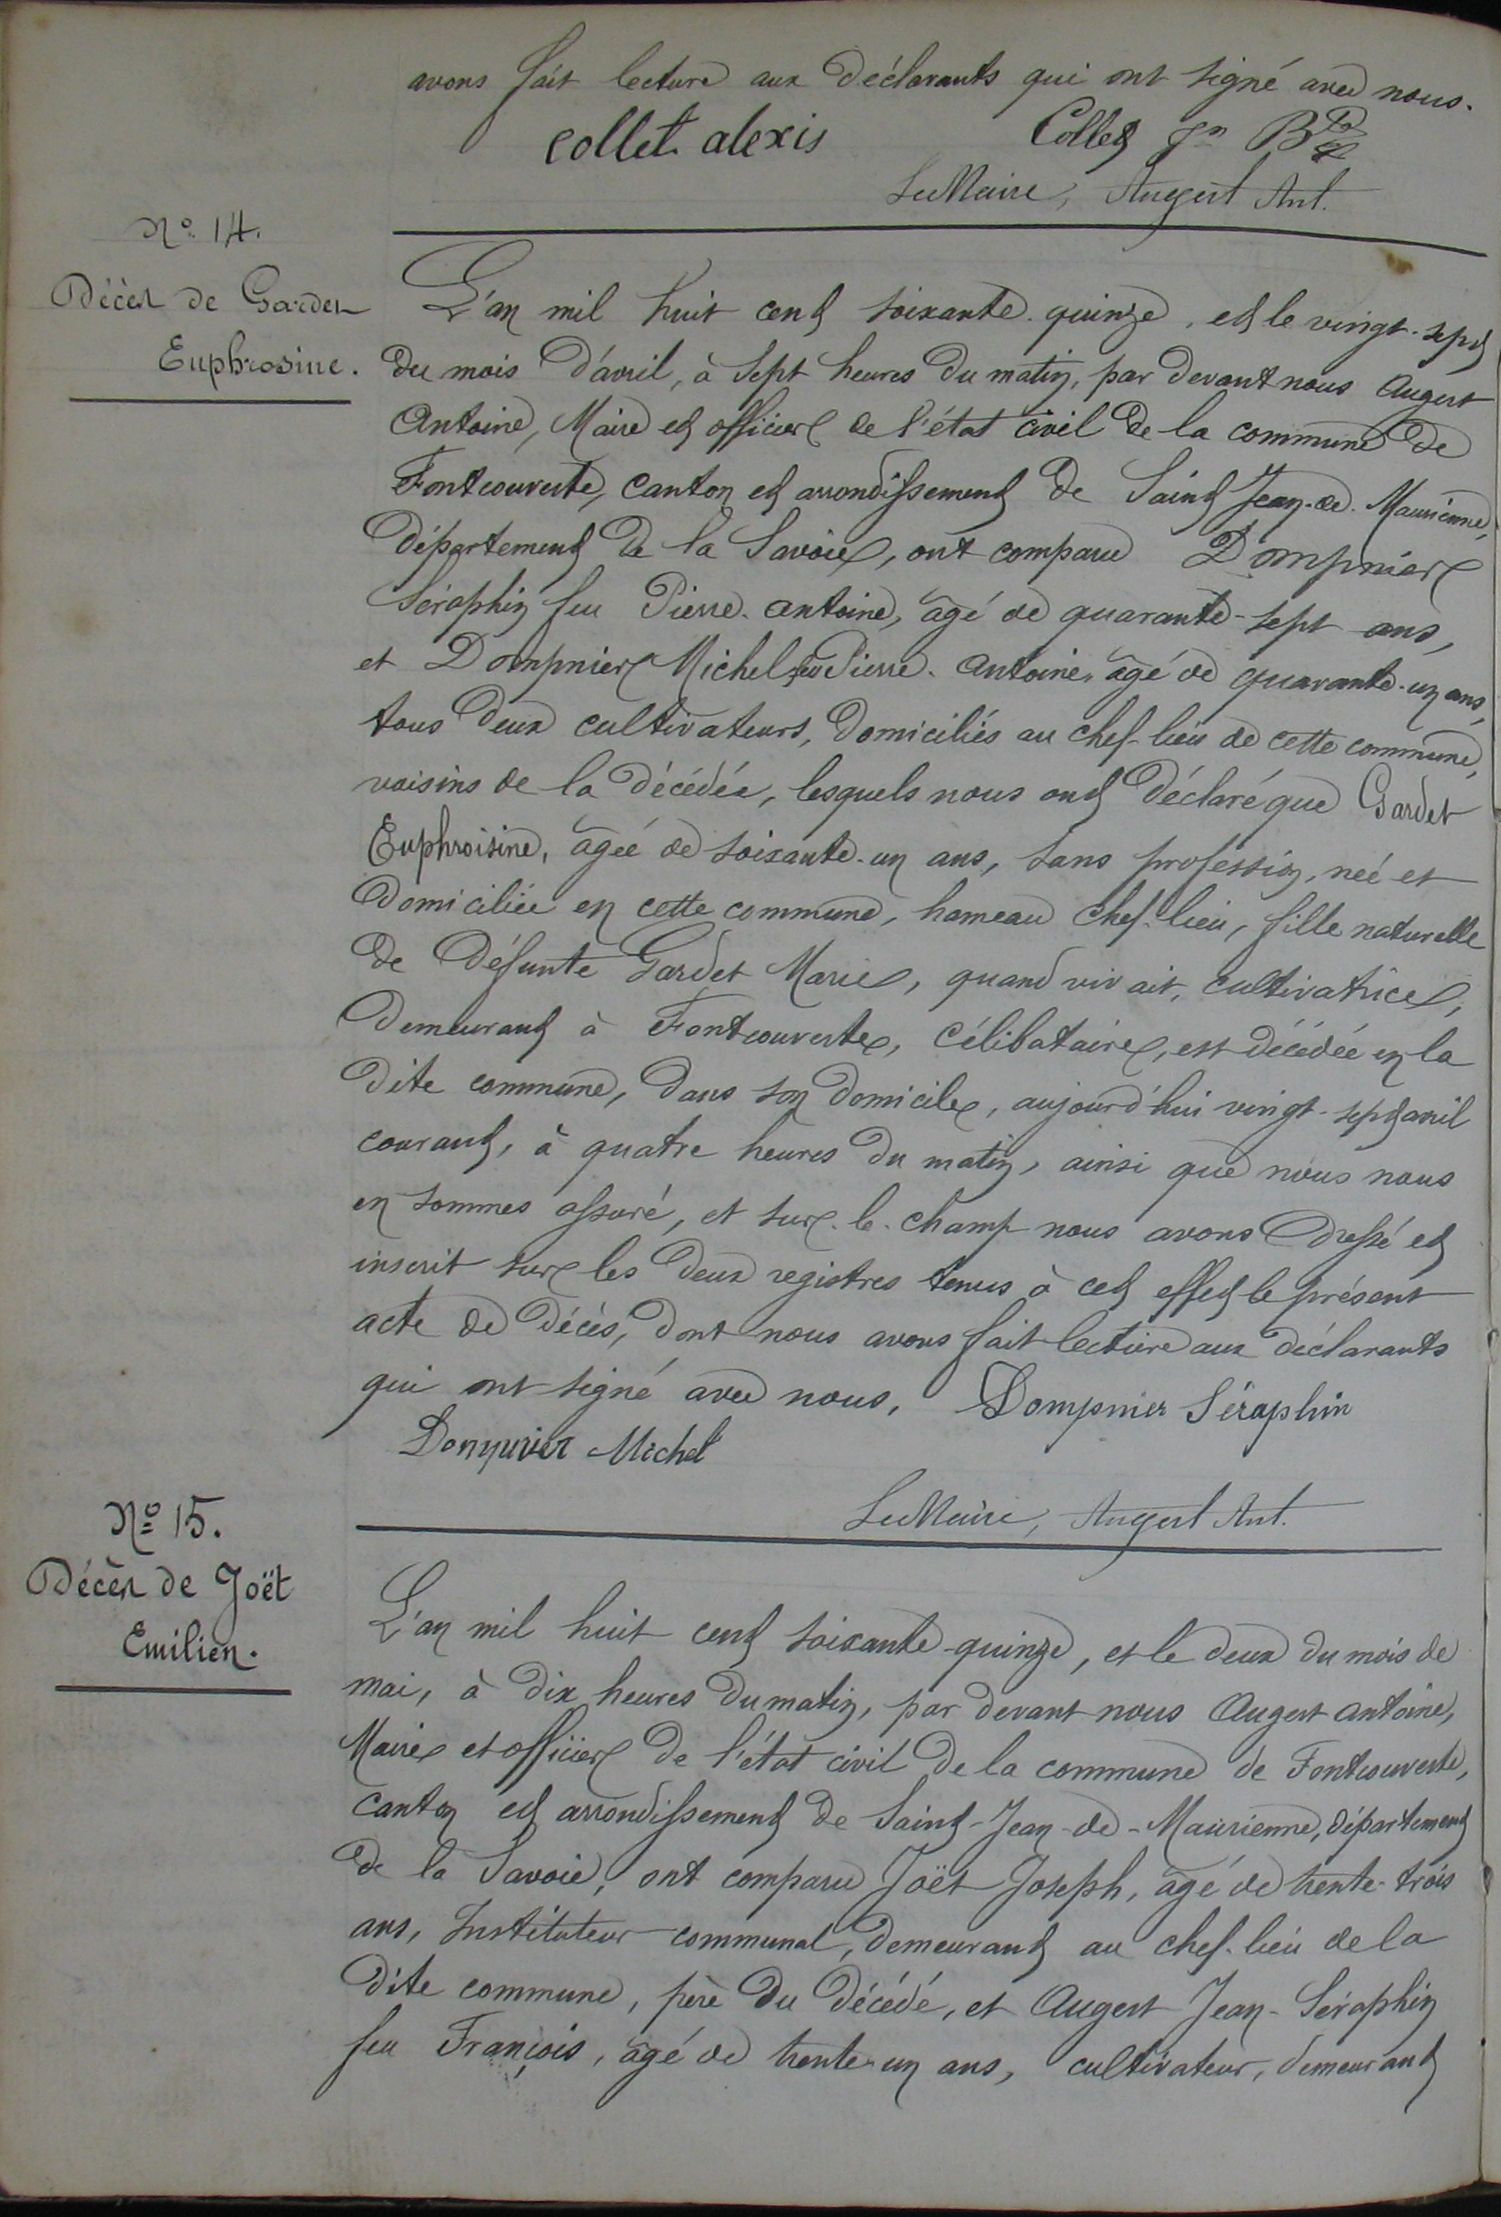 avons fait lecture aux déclarants qui ont signé avec nous.
Collet alexis Collet Jn Bte
Le Maire, Augert Ant.
No 14.
Décès de Gardet
Euphrosine.
L'an mil huit cent soixante-quinze, et le vingt-sept
du mois d'avril, à sept heures du matin, par devant nous Augert
Antoine, Maire et officier de l'état civil de la commune de
Fontcouverte, canton et arrondissement de Saint Jean-de-Maurienne,
département de la Savoie, ont comparu Dompnier
Séraphin feu Pierre-Antoine, âgé de quarante-sept ans,
et Dompnier Michel feu Pierre-Antoine, âgé de quarante-un ans,
tous deux cultivateurs, domiciliés au chef-lieu de cette commune,
voisins de la décédée, lesquels nous ont déclaré que Gardet
Euphroisine, agée de soixante-un ans, sans profession, née et
domiciliée en cette commune, hameau chef-lieu, fille naturelle
de défunte Gardet Marie, quand vivait, cultivatrice,
demeurant à Fontcouverte, célibataire, est décédée en la
dite commune, dans son domicile, aujourd'hui vingt-sept avril
courant, à quatre heures du matin, ainsi que nous nous
en sommes assuré, et sur-le-champ nous avons dressé et
inscrit sur les deux registres tenus à cet effet le présent
acte de décès, dont nous avons fait lecture aux déclarants
qui ont signé avec nous, Dompnier Séraphin
Dompnier Michel
Le Maire, Augert Ant.
No 15.
Décès de Joët
Emilien.
L'an mil huit cent soixante-quinze, et le deux du mois de
mai, à dix heures du matin, par devant nous Augert Antoine,
Maire et officier de l'état civil de la commune de Fontcouverte,
canton et arrondissement de Saint-Jean-de-Maurienne, département
de la Savoie, ont comparu Joët Joseph, âgé de trente-trois
ans, Instituteur communal, demeurant au chef-lieu de la
dite commune, père du décédé, et Augert Jean-Séraphin
feu François, âgé de trente-un ans, cultivateur, demeurant